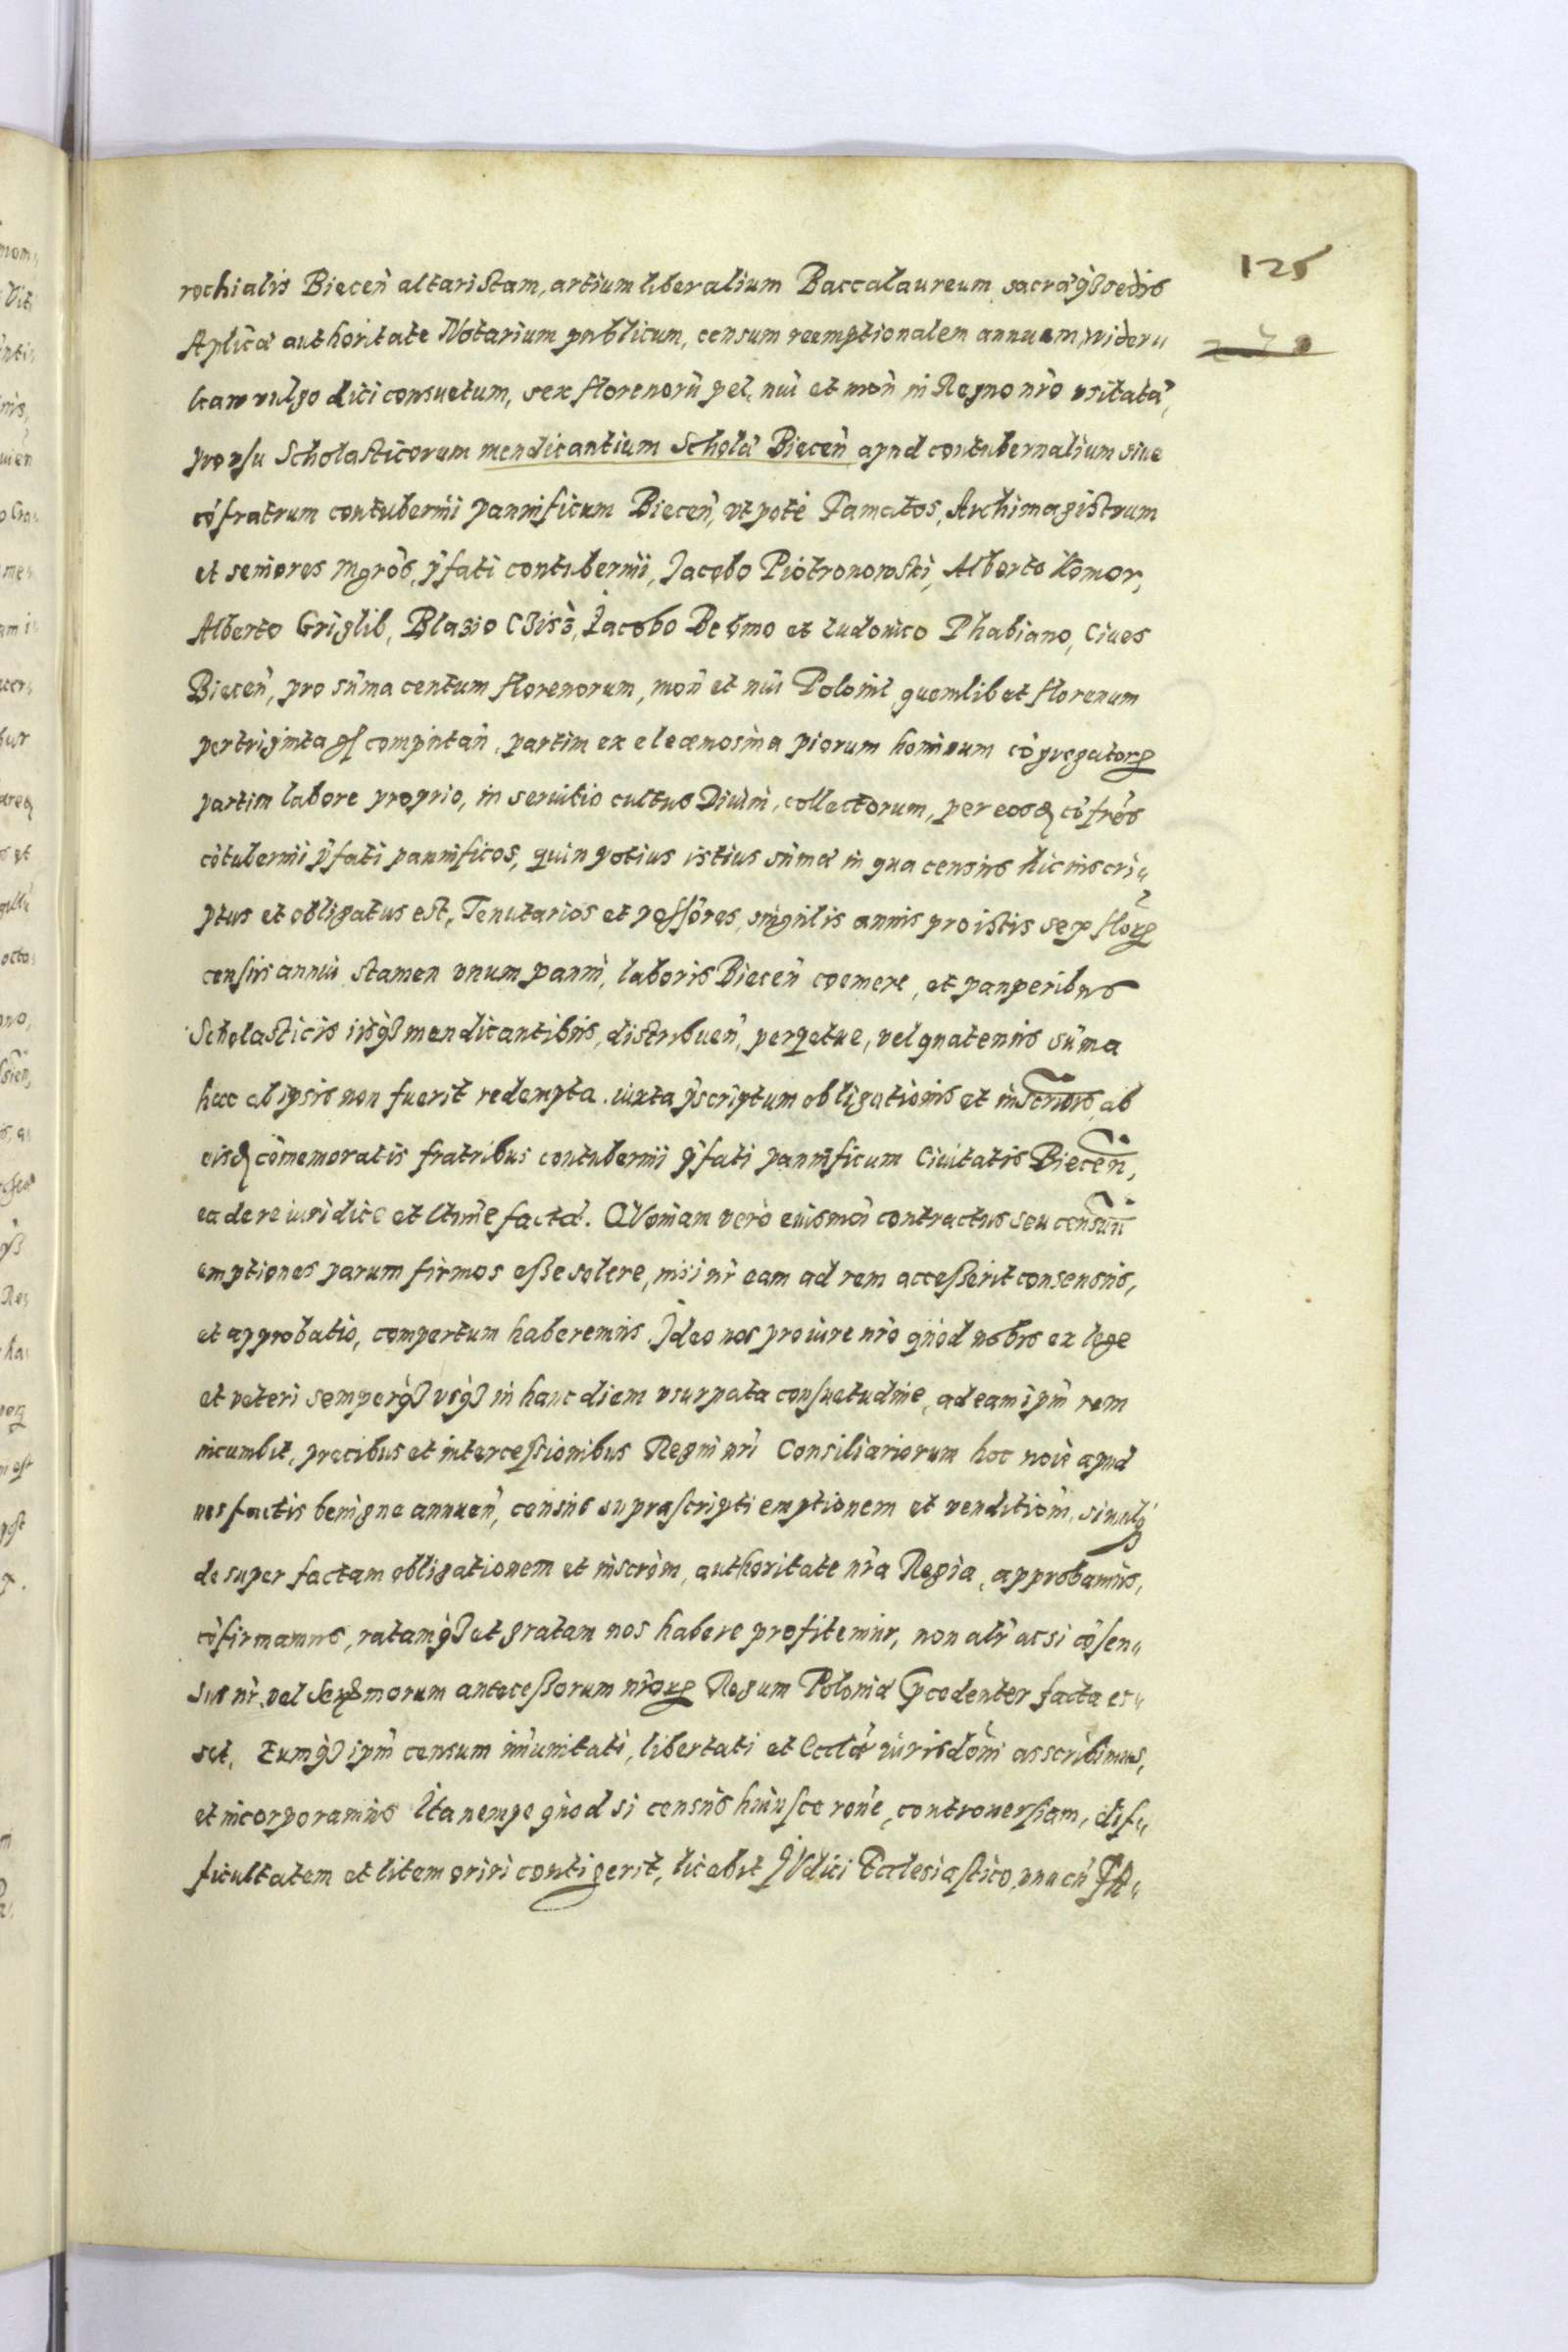 125
rochialis Biecen̄ altaristam, artium liberalium Baccalaureum sacræq₃ sedis
Aplicæ authoritate Notarium publicum, censum reemptionalem annuum, wideru
kaw vulgo dici consuetum, sex florenorū pec. nūi et mon̄ in Regno nr̄o vsitatæ,
pro vsu Scholasticorum mendicantium Scholæ Biecen̄ apud contubernalium siue
cōfratrum contubernii pannificum Biecen̄, vt pote Famatos, Archimagistrum
et seniores Mgrōs, p̄fati contubernii, Jacobo Piotronowski, Alberto Komor,
Alberto Griglib, Blasio Czisz, Jacobo Behmo et Ludouico Phabiano, Ciues
Biecen̄, pro sūma centum florenorum, mon̄ et nūi Polonić quemlibet florenum
per triginta gͬ computan̄, partim ex eleæmosina piorum hominum cōgregatorꝝ
partim labore proprio, in seruitio cultus Diuini, collectorum, per eosd cōfrēs
cōtubernii p̄fati pannificos, quin potius istius sūmæ in qua census hic inscri„
ptus et obligatus est, Tenutarios et possōres, singulis annis pro istis sex florꝝ
census annui stamen vnum panni, laboris Biecen̄ coemere, et pauperibus
Scholasticis iisq₃ mendicantibus, distribuen̄, perpetue, vel quatenus sūma
hæc ab ipsis non fuerit redempta. iuxta p̄scriptum obligationis et inscrn̄is, ab
eisd cōmemoratis fratribus contubernii p̄fati pannificum Ciuitatis Biecen̄,
ea de re iuridice et Ltim̄e factæ. QVoniam vero eiusmōi contractus seu censuū
emptiones parum firmos eße solere, nisi nr̄ eam ad rem acceßerit consensus,
et approbatio, compertum haberemus. Ideo nos pro iure nr̄o quod nobis ex lege
et veteri semperq₃ vsq₃ in hanc diem vsurpata consuetudine, ad eam ipm̄ rem
incumbit, precibus et interceßionibus Regni nr̄i Consiliariorum hoc noīe apud
nos factis benigne annuen̄, census suprascripti emptionem et venditiōm, simulq₃
desuper factam obligationem et inscrōm, authoritate nr̄a Regia, approbamus,
cōfirmamus, ratamq₃ et gratam nos habere profitemur, non alr̄ ac si cōsen„
sus nr̄ vel Serꝫmorum anteceßorum nr̄orꝝ Regum Poloniæ p̄cedenter facta es„
set, Eumq₃ ipm̄ censum im̄unitati, libertati et Ecclæ iurisdōni asscribimus,
et incorporamus Ita nempe quod si census huiusce ron̄e, controuersiam, dif„
ficultatem et litem oriri contigerit, licebit IVdici Ecclesiastico, vna cū